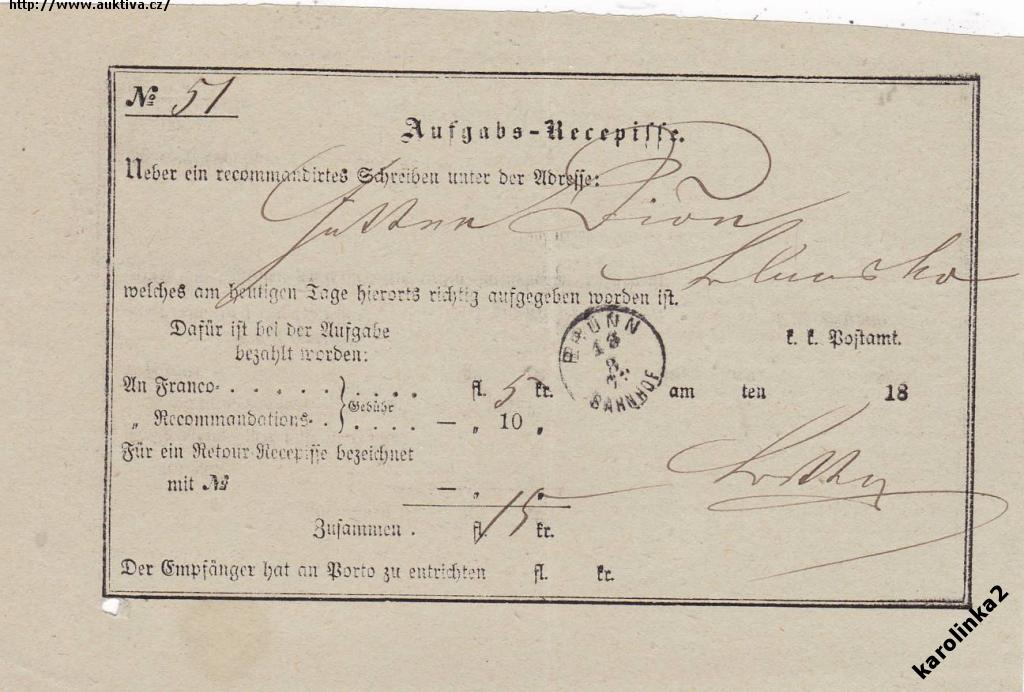 http://www.auktiva.cz/
№ 51
Aufgabs-Recepisse.
Ueber ein recommandirtes Schreiben unter der Adresse:
welches am heutigen Tage hierorts richtig aufgegeben worden ist.
Dafür ist bei der Aufgabe
bezahlt worden:
k. k. Postamt.
BRÜNN
BAHNHOF
An Franco- . . . . . } . . . . fl. 5 kr.
am ten 18
„ Recommandations- . } Gebühr . . . . — „ 10 „
Für ein Retour-Recepisse bezeichnet
mit № — „ „
Zusammen . fl. 15 kr.
Der Empfänger hat an Porto zu entrichten fl. kr.
karolinka2